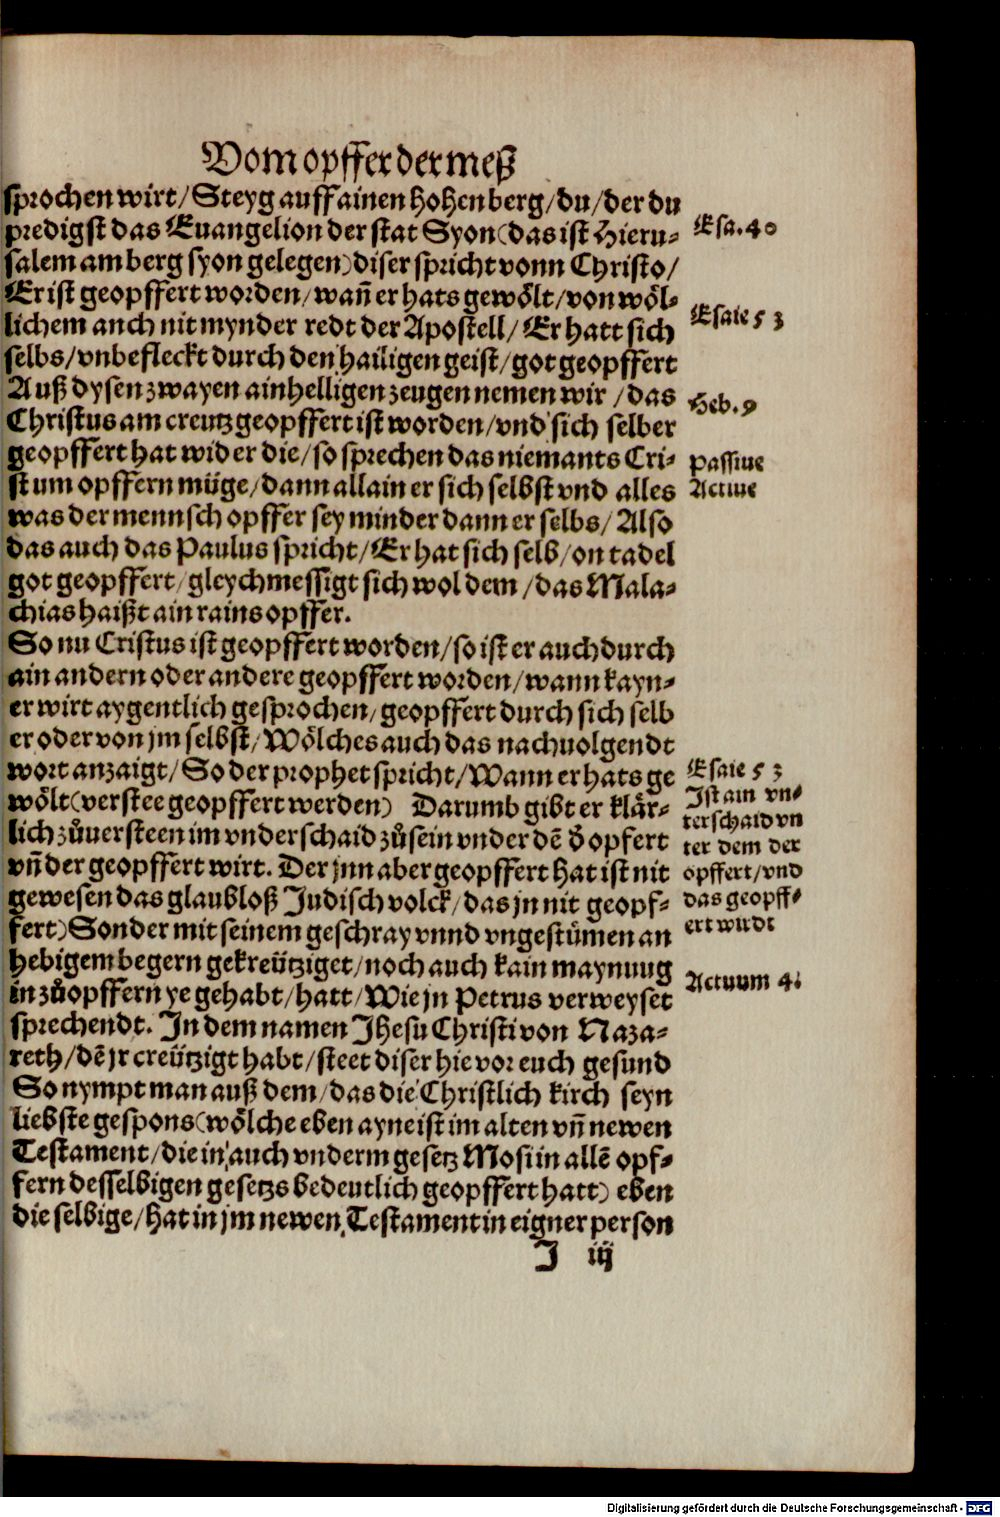 Vom opffer der meß
sprochen wirt/ Steyg auff ainen hohen berg/ du/ der du
predigst das Euangelion der stat Syon (das ist Hieru-
salem am berg syon gelegen) diser spricht vonn Christo/
Er ist geopffert worden/ wañ er hats gewölt/ von wöl-
lichem auch nit mynder redt der Apostell/ Er hatt sich
selbs/ vnbefleckt durch den hailigen geist/ got geopffert
Auß dysen zwayen ainhelligen zeugen nemen wir/ das
Christus am creutz geopffert ist worden/ vnd sich selber
geopffert hat wider die/ so sprechen das niemants Cri-
stum opffern müge/ dann allain er sich selbst vnd alles
was der mennsch opffer sey minder dann er selbs/ Also
das auch das Paulus spricht/ Er hat sich selb/ on tadel
got geopffert/ gleychmessigt sich wol dem/ das Mala-
chias haißt ain rains opffer.
So nu Cristus ist geopffert worden/ so ist er auch durch
ain andern oder andere geopffert worden/ wann kayn-
er wirt aygentlich gesprochen/ geopffert durch sich selb
er oder von jm selbst/ Wölches auch das nachuolgendt
wort anzaigt/ So der prophet spricht/ Wann er hats ge
wölt (verstee geopffert werden) Darumb gibt er klär-
lich zůuersteen im vnderschaid zů sein vnder dē d̄ opfert
vñ der geopffert wirt. Der jnn aber geopffert hat ist nit
gewesen das glaubloß Judisch volck/ das jn nit geopf-
fert) Sonder mit seinem geschray vnnd vngestümen an
hebigem begern gekreütziget/ noch auch kain maynuug
in zů opffern ye gehabt/ hatt/ Wie jn Petrus verweyset
sprechendt. In dem namen Jhesu Christi von Naza-
reth/ dē jr creützigt habt/ steet diser hie vor euch gesund
So nympt man auß dem/ das die Christlich kirch seyn
liebste gespons (wölche eben ayne ist im alten vñ newen
Testament/ die in auch vnderm gesetz Mosi in allē opf-
fern desselbigen gesetzs bedeutlich geopffert hatt) eben
die selbige/ hat in jm newen Testament in eigner person
J iij
Esa. 40
Esaie 53
Heb. 9
passiue
Actiue
Esaie 53
Ist ain vn-
terschaid vn
ter dem der
opffert/ vnd
das geopff-
ert wirdt
Actuum 4.
Digitalisierung gefördert durch die Deutsche Forschungsgemeinschaft - DFG